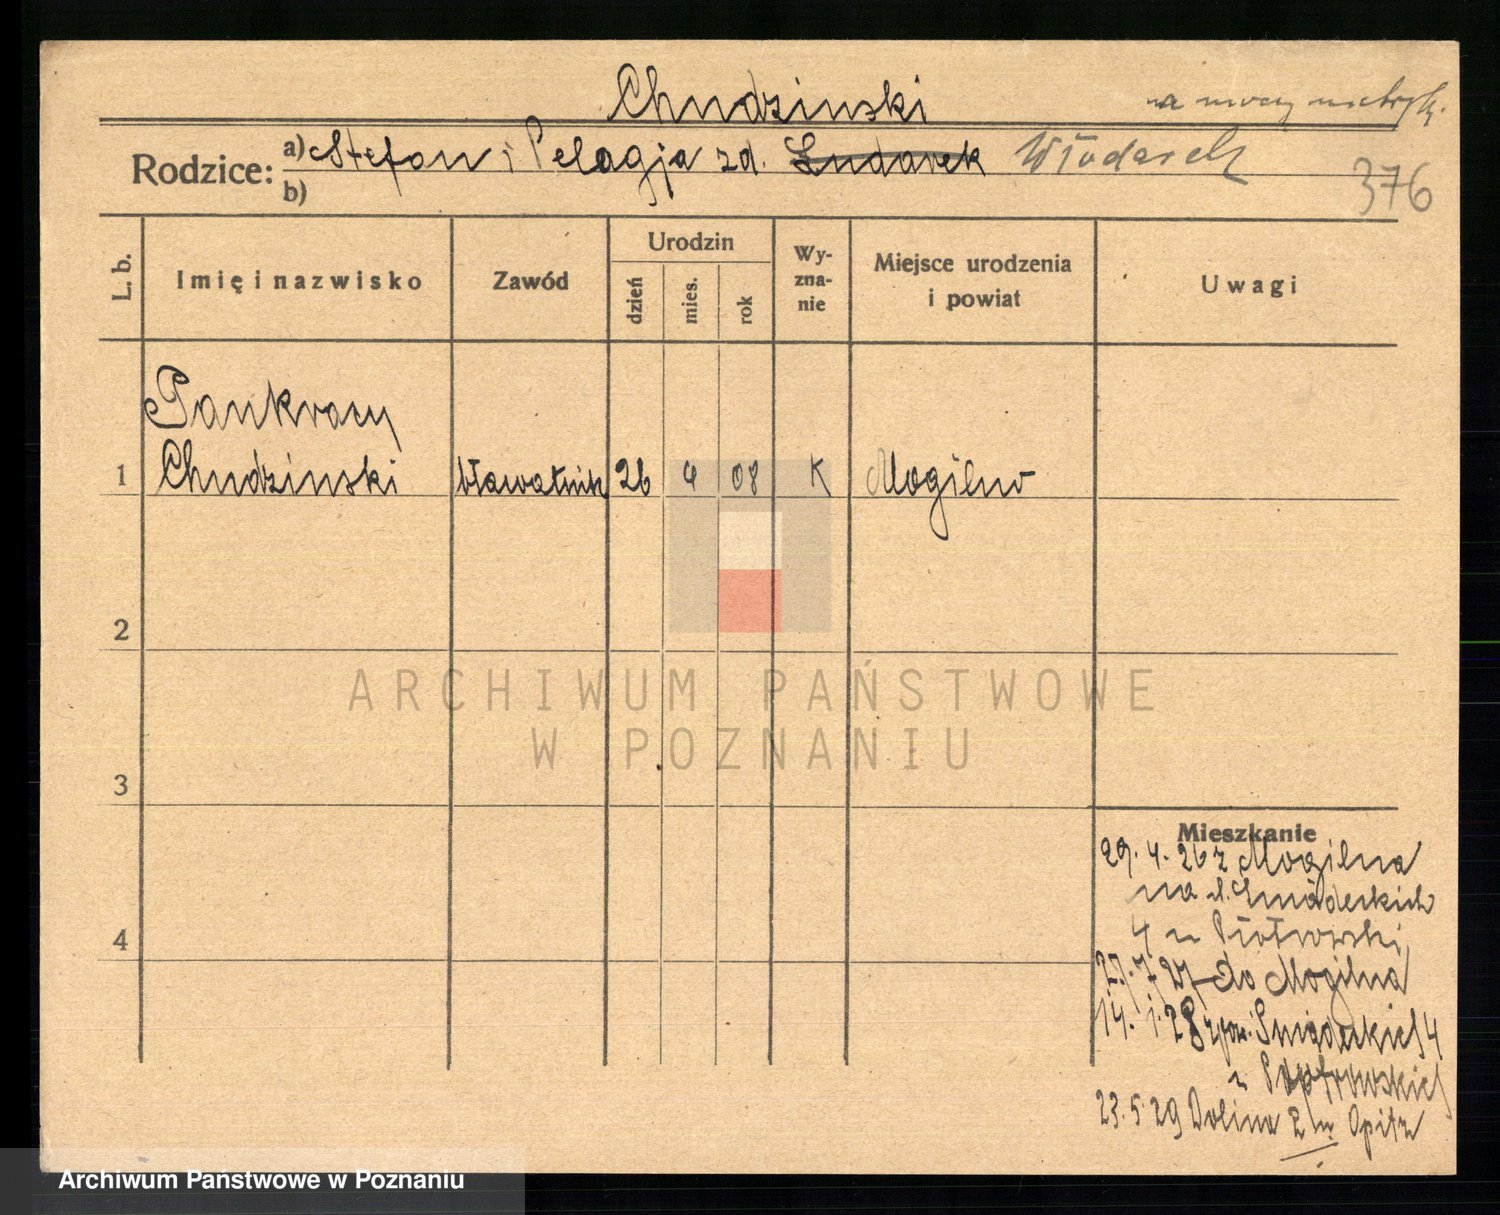 Chudzinski
na mocy metryki.
Rodzice:
a) Stefan i Pelagja zd. Ludarek Włodarek
b)
376
L. b.
Imię i nazwisko
Zawód
Urodzin
dzień
mies.
rok
Wy-
zna-
nie
Miejsce urodzenia
i powiat
Uwagi
Pankracy
1 Chudzinski bławatnik 26 4 08 K Mogilno
2
3
4
ARCHIWUM PAŃSTWOWE
W POZNANIU
Mieszkanie
29. 4. 26 z Mogilna
na ul. Sniadeckich
4 u Piotrowski
27. 7 27 do Mogilna
14. 1. 28 Sniadeckich 4
u
23. 5. 29 Dolina 2 u Opitz
Archiwum Państwowe w Poznaniu